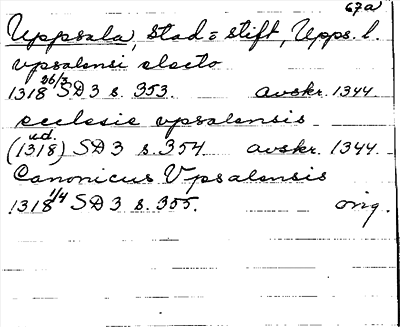 67a
Uppsala, stad = stift, Upps. l.
vpsalensi electo
1318 26/3 SD 3 s. 353. avskr. 1344
ecclesie vpsalensis
(1318) u.d. SD 3 s. 354. avskr. 1344.
Canonicus Vpsalensis
1318 1/4 SD 3 s. 355. orig.